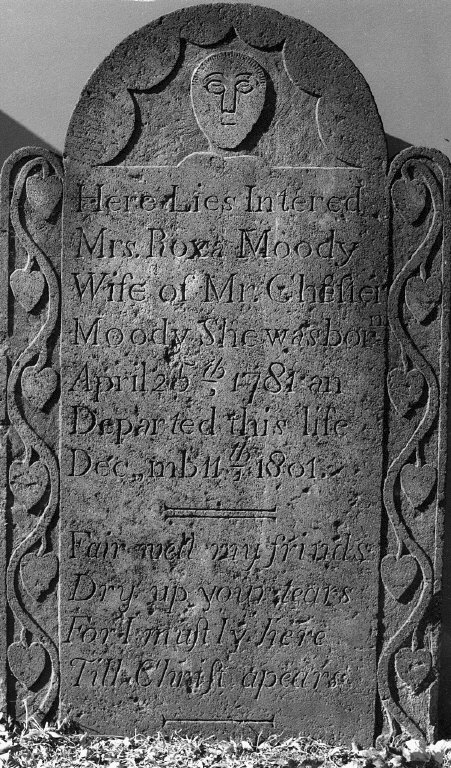 Here Lies Intered
Mrs. Roxa Moody
Wife of Mr. Cheſter
Moody She was born
April 26th, 1781 an
Departed this life
Dec,,mb 11th, 1801.
Fair well my frinds
Dry up your tears
For I muſt ly here
Till Chriſt apears